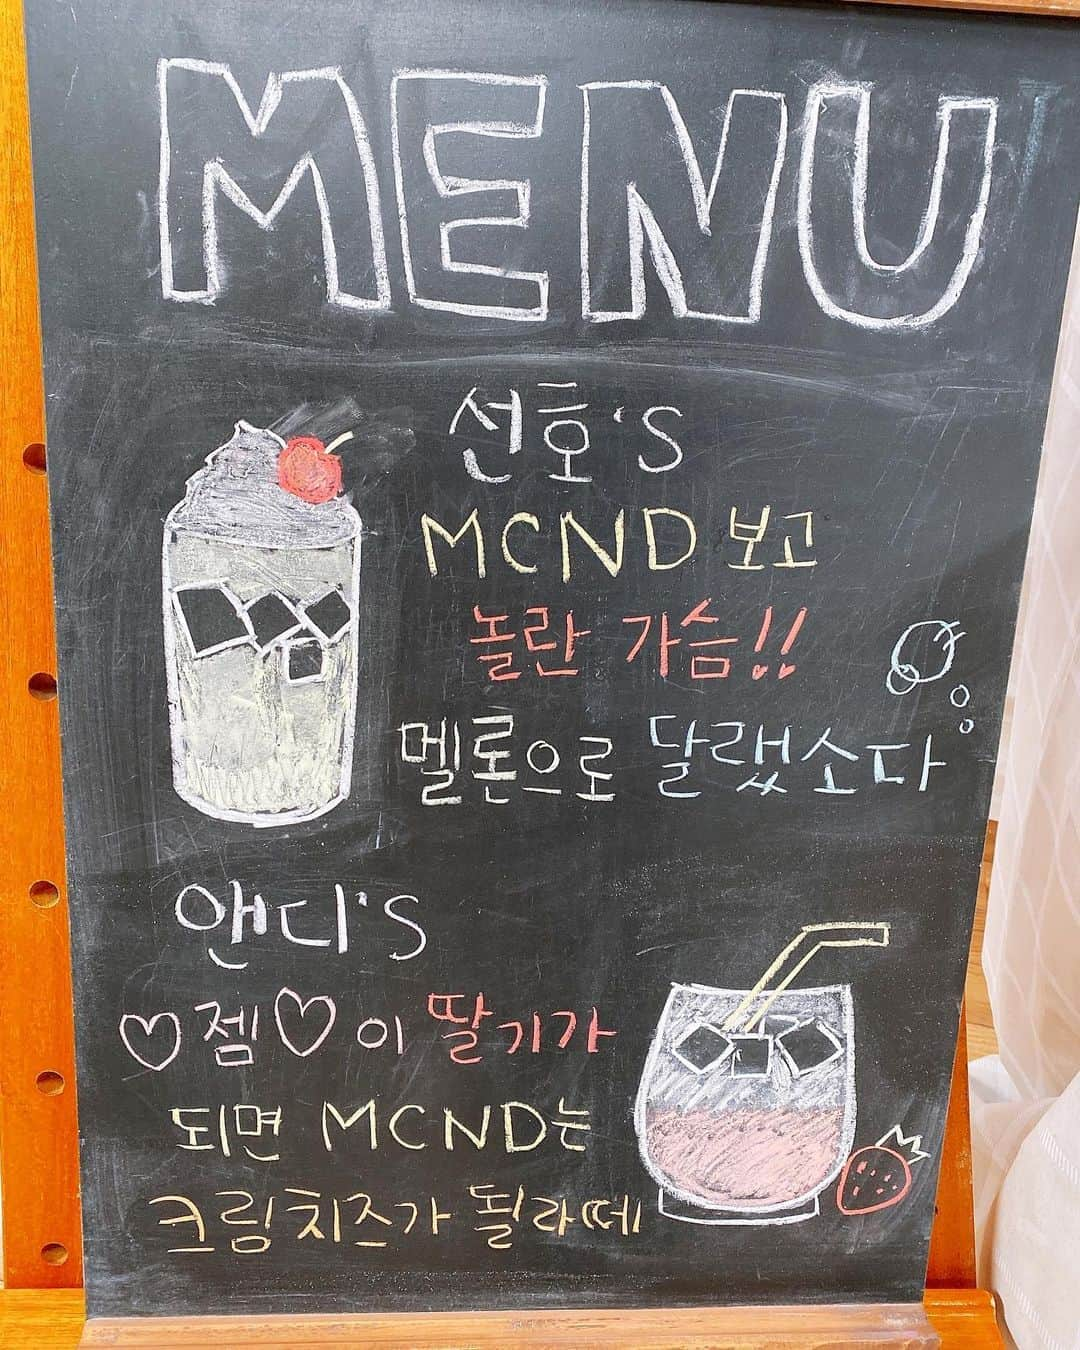 MENU
선호's
MCND 보고
놀란 가슴!!
멜론으로 달랬소다
앤디's
♡젬♡이 딸기가
되면 MCND는
크림치즈가 될라떼